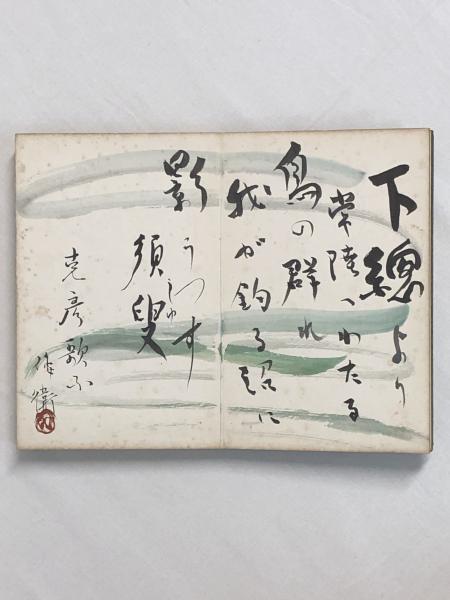 下總より
常陸へわたる
鳥の群れ
我が釣る
影うつす
須臾
克彦歌